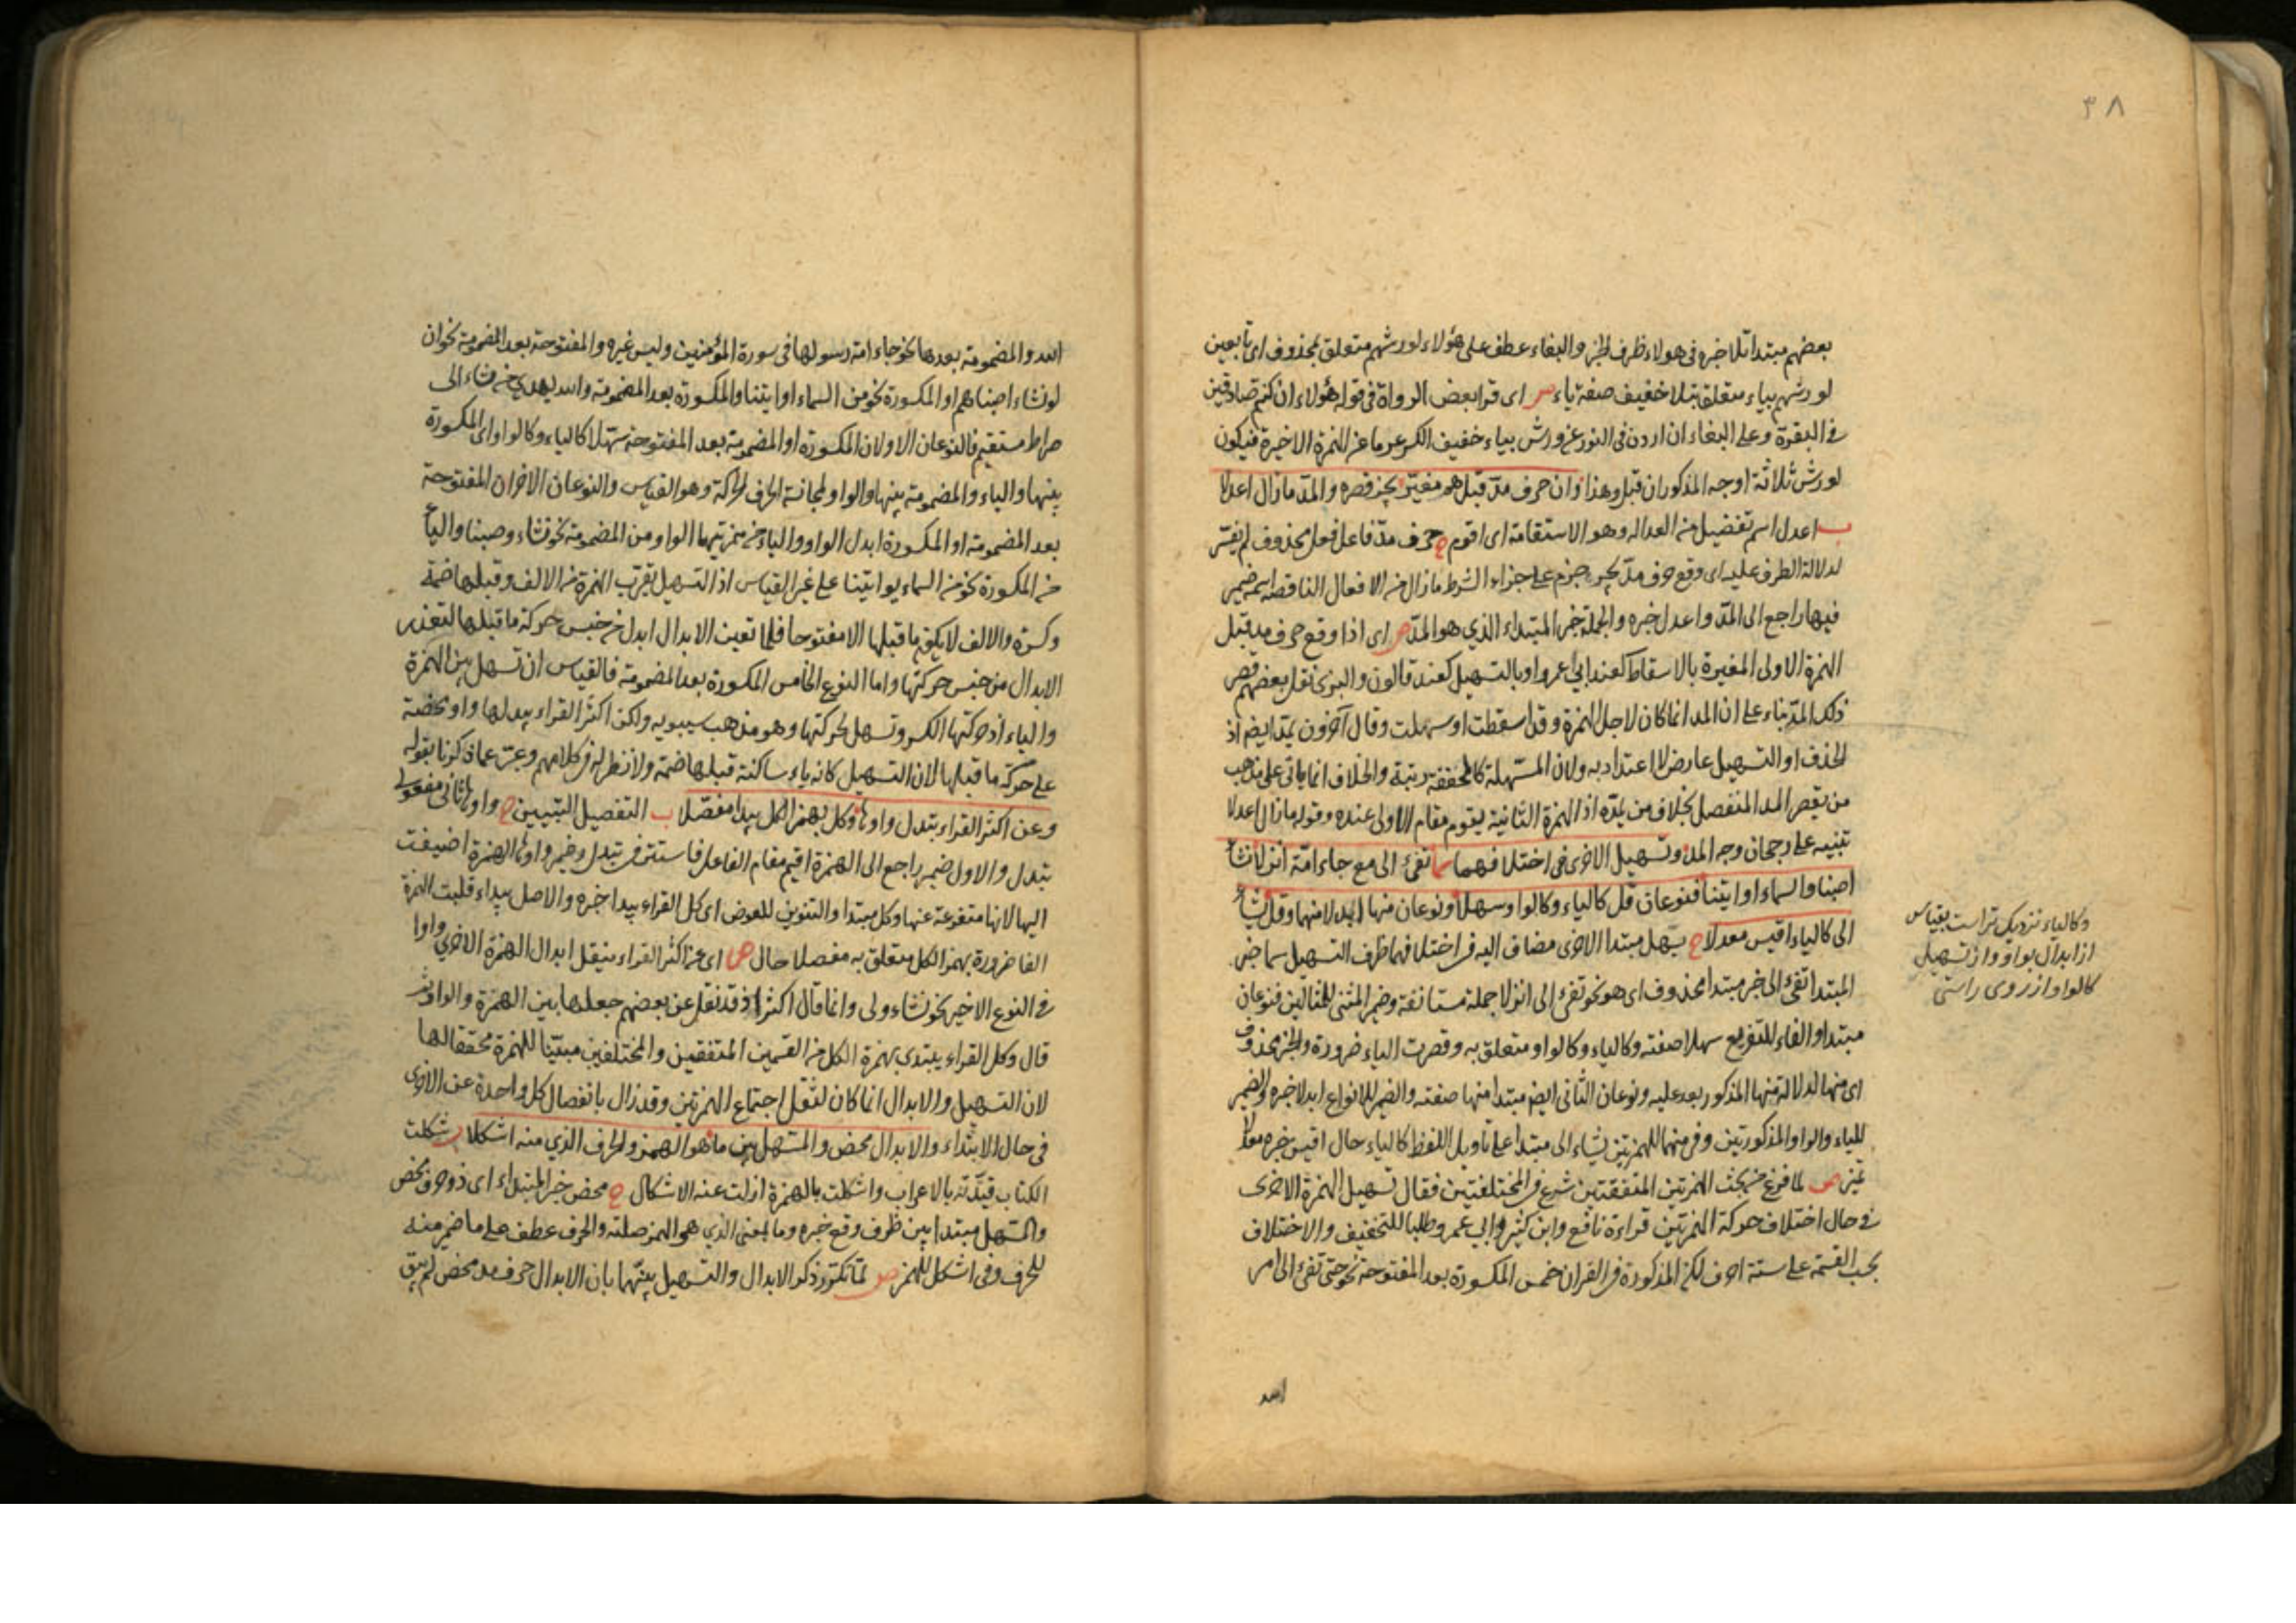 ٣٨
بعضهم مبتدا تلا خبره فى هولاء ظرف الخبر والبغاء عطف على هؤلاء لورشهم متعلق بمحذوف اى تابعين
لورشهم بياء متعلق بتلا خفيف صفة ياء ص اى قرا بعض الرواة فى قوله هؤلاء ان كنتم صادقين
فى البقرة وعلى البغاء ان اردن فى النور عن ورش بياء خفيف الكسر عوضا عن الهمزة الاخيرة فيكون
لورش ثلاثة اوجه المذكوران قبل وهذا وان حرف مد قبل همز مغير يجز قصره والمد ما زال اعدلا
ب اعدل اسم تفضيل من العدالة وهو الاستقامة اى اقوم ح حرف مد فاعل فعل محذوف لم يفسر
لدلالة الظرف عليه اى وقع حرف مد يجز جزم على جزاء الشرط ما زال من الافعال الناقصة اسمه ضمير
فيها راجع الى المد واعدل خبره والجملة خبر المبتداء الذي هو المد ص اى اذا وقع حرف مد قبل
الهمزة الاولى المغيرة بالاسقاط كعند ابي عمرو او بالتسهيل كعند قالون والبزى نقل بعضهم قصر
ذلك المد بناء على ان المد انما كان لاجل الهمزة وقد اسقطت او سهلت وقال آخرون يمد ايضا اذ
الحذف او التسهيل عارض لا اعتداد به ولان المسهلة كالمحققة رتبة والخلاف انما ياتى على مذهب
من يقصر المد المنفصل بخلاف من يمده اذ الهمزة الثانية يقوم مقام الاولى عنده وقوله ما زال اعدلا
تنبيه على رجحان وجه المد وتسهيل الاخرى فى اختلافهما سما تفئ الى مع جاء امة انزلا نشاء
اصبنا والسماء او ايتنا فنوعان قل كالياء وكالواو سهلا ونوعان منها ابدلا منهما وقل يشاء
الى كالياء اقيس معدلا ح يسهل مبتدا الاخرى مضاف اليه فى اختلافهما ظرف التسهيل سما خبر
المبتدا تفئ الى خبر مبتدا محذوف اى هو نحو تفئ الى انزلا جملة مستانفة وضمير المثنى للمثالين فنوعان
مبتدا والفاء للتفريع سهلا صفته وكالياء وكالواو متعلق به وقصرت الياء ضرورة والخبر محذوف
اى منها لدلالة منها المذكور بعد عليه ونوعان الثانى ايضا مبتدا منها صفته والضمير للانواع ابدلا خبره والضمير
للياء والواو المذكورتين وفى منهما للهمزتين يشاء الى مبتدا على تاويل اللفظ كالياء حال اقيس خبره معدلا
تميز ص لما فرغ من بحث الهمزتين المتفقتين شرع فى المختلفتين فقال تسهيل الهمزة الاخرى
فى حال اختلاف حركة الهمزتين قراءة نافع وابن كثير وابي عمرو طلبا للتخفيف والاختلاف
بحسب القسمة على ستة احرف لكن المذكورة فى القران خمس المكسورة بعد المفتوحة نحو حتى تفئ الى امر
الله
وكالياء نزديك تر است بقياس
از ابدال بواو و از تسهيل
كالواو از روى راستى
الله والمضمومة بعدها نحو جاء امة رسولها فى سورة المؤمنين وليس غيره والمفتوحة بعد المضمومة نحو ان
لو نشاء اصبناهم او المكسورة نحو من السماء او ايتنا والمكسورة بعد المضمومة والله يهدى من يشاء الى
صراط مستقيم فالنوعان الاولان المكسورة او المضمومة بعد المفتوحة سهلا كالياء وكالواو اى المكسورة
بينها والياء والمضمومة بينها والواو لمجانسة الحرف الحركة وهو القياس والنوعان الاخران المفتوحة
بعد المضمومة او المكسورة ابدل الواو والياء من همزتيهما الواو من المضمومة نحو نشاء وصبنا والياء
من المكسورة نحو من السماء يوايتينا على غير القياس اذ التسهيل يقرب الهمزة من الالف وقبلها ضمة
وكسرة والالف لا يكون ما قبلها الا مفتوحا فلما تعين الابدال ابدل من جنس حركة ما قبلها لتعذر
الابدال من جنس حركتها واما النوع الخامس المكسورة بعد المضمومة فالقياس ان تسهل بين الهمزة
والياء اذ حركتها الكسر وتسهل لحركتها وهو مذهب سيبويه ولكن اكثر القراء يبدلها واوا محضة
على حركة ما قبلها لان التسهيل كانه ياء ساكنة قبلها ضمة ولا نظير له فى كلامهم وعبر عما ذكرنا بقوله
وعن اكثر القراء تبدل واوها وكل بهمز الكل يبدا مفصلا ب التفصيل التبيين ح واوها ثانى مفعولى
تبدل والاول ضمير راجع الى الهمزة اقيم مقام الفاعل فاستتر فى تبدل وضمير واوها الهمزة اضيفت
اليها لانها متفرعة عنها وكل مبتدا والتنوين للعوض اى كل القراء يبدا خبره والاصل يبداء قلبت الهمزة
الفا ضرورة بهمز الكل متعلق به مفصلا حال ص اى عن اكثر القراء ينقل ابدال الهمزة الاخرى واوا
فى النوع الاخير نحو نشاء ولى وانما قال اكثر اذ قد نقل عن بعضهم جعلها بين الهمزة والواو ثم
قال وكل القراء يبتدى بهمزة الكل من القسمين المتفقين والمختلفين مبينا للهمزة محققا لها
لان التسهيل والابدال انما كان لثقل اجتماع الهمزتين وقد زال بانفصال كل واحدة عن الاخرى
فى حال الابتداء والابدال محض والمسهل بين ما هو الهمز والحرف الذي منه اشكلا ب شكلت
الكتاب قيدته بالاعراب واشكلت بالهمزة ازلت عنه الاشكال ح محض خبر المبتداء اى ذو حرف محض
والمسهل مبتدا بين ظرف وقع خبره وما بمعنى الذي هو الهمز صلته والحرف عطف على ما ضمير منه
للحرف وفى اشكل للهمز ص لما تكرر ذكر الابدال والتسهيل بينهما بان الابدال حرف مد محض لم يبق